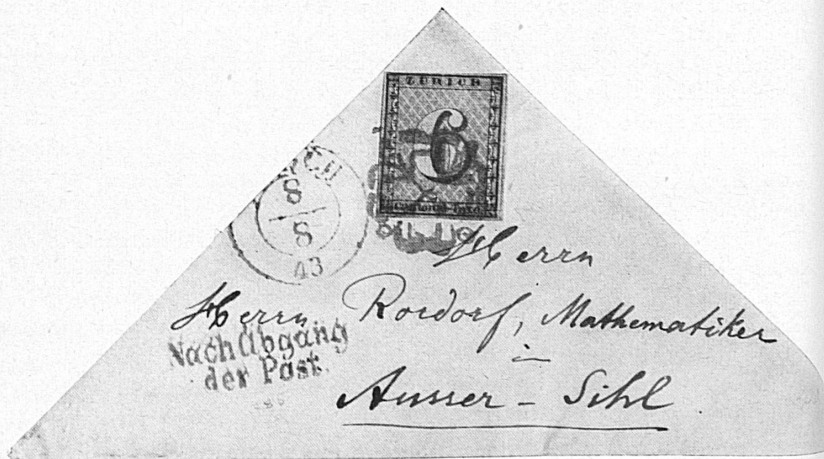 ZÜRICH
6
8
8
43
Herrn
Herrn Rordorf, Mathematiker
in
Ausser-Sihl
Nach Abgang
der Post.